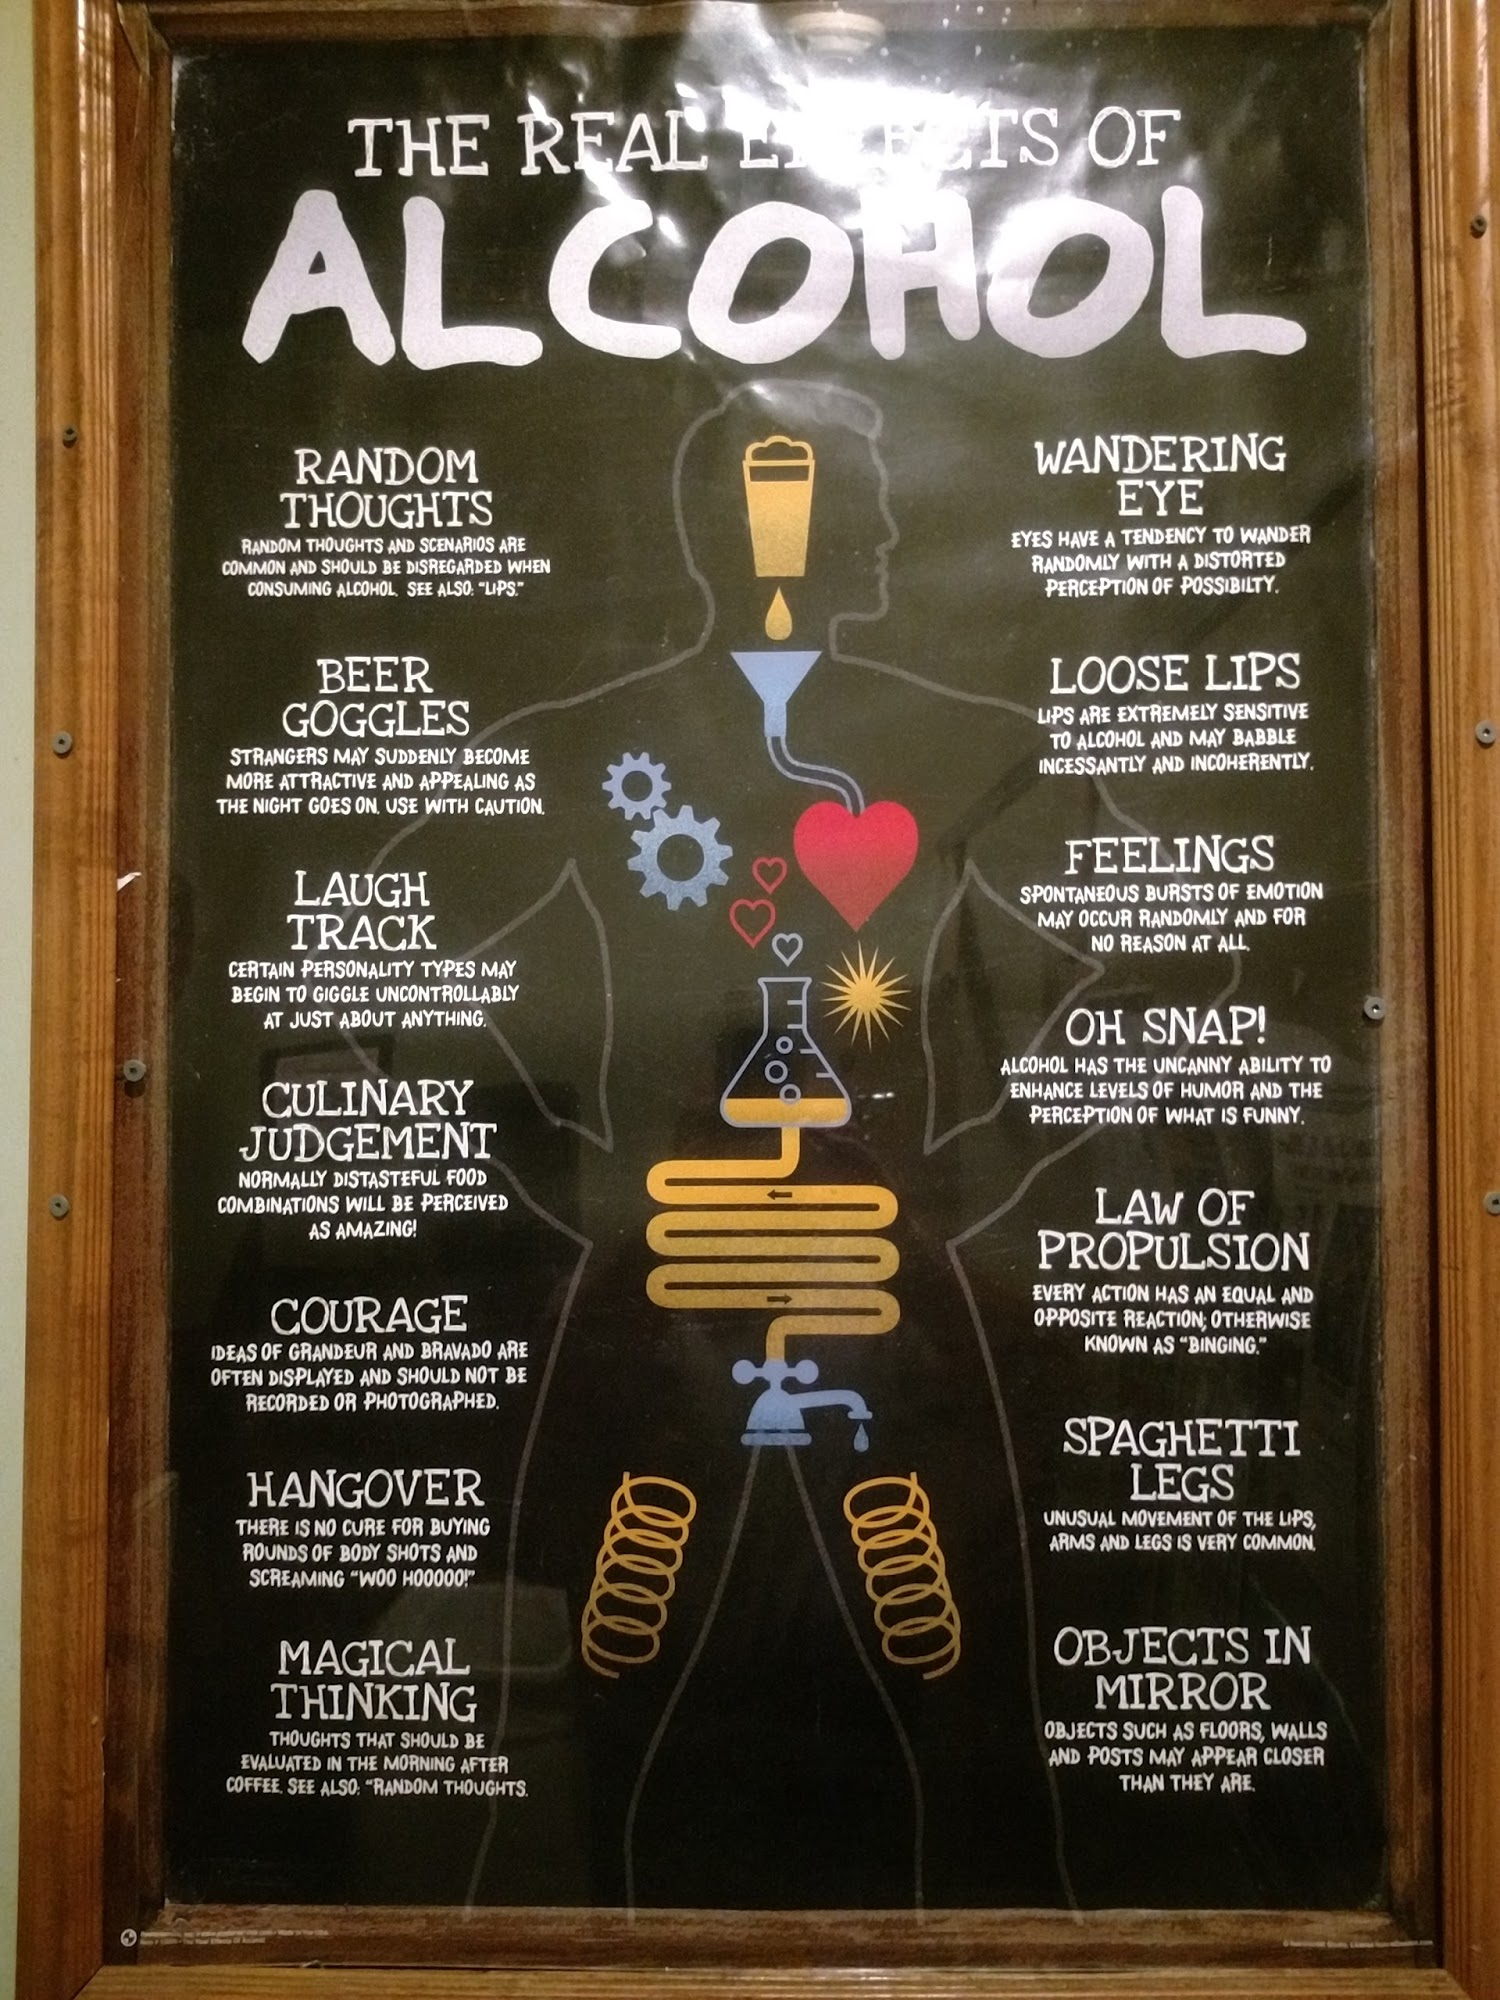 THE REAL EFFECTS OF
ALCOHOL
RANDOM
THOUGHTS
RANDOM THOUGHTS AND SCENARIOS ARE
COMMON AND SHOULD BE DISREGARDED WHEN
CONSUMING ALCOHOL. SEE ALSO: "LIPS."
BEER
GOGGLES
STRANGERS MAY SUDDENLY BECOME
MORE ATTRACTIVE AND APPEALING AS
THE NIGHT GOES ON. USE WITH CAUTION.
LAUGH
TRACK
CERTAIN PERSONALITY TYPES MAY
BEGIN TO GIGGLE UNCONTROLLABLY
AT JUST ABOUT ANYTHING.
CULINARY
JUDGEMENT
NORMALLY DISTASTEFUL FOOD
COMBINATIONS WILL BE PERCEIVED
AS AMAZING!
COURAGE
IDEAS OF GRANDEUR AND BRAVADO ARE
OFTEN DISPLAYED AND SHOULD NOT BE
RECORDED OR PHOTOGRAPHED.
HANGOVER
THERE IS NO CURE FOR BUYING
ROUNDS OF BODY SHOTS AND
SCREAMING "WOO HOOOOO!"
MAGICAL
THINKING
THOUGHTS THAT SHOULD BE
EVALUATED IN THE MORNING AFTER
COFFEE. SEE ALSO: "RANDOM THOUGHTS.
WANDERING
EYE
EYES HAVE A TENDENCY TO WANDER
RANDOMLY WITH A DISTORTED
PERCEPTION OF POSSIBILTY.
LOOSE LIPS
LIPS ARE EXTREMELY SENSITIVE
TO ALCOHOL AND MAY BABBLE
INCESSANTLY AND INCOHERENTLY.
FEELINGS
SPONTANEOUS BURSTS OF EMOTION
MAY OCCUR RANDOMLY AND FOR
NO REASON AT ALL.
OH SNAP!
ALCOHOL HAS THE UNCANNY ABILITY TO
ENHANCE LEVELS OF HUMOR AND THE
PERCEPTION OF WHAT IS FUNNY.
LAW OF
PROPULSION
EVERY ACTION HAS AN EQUAL AND
OPPOSITE REACTION; OTHERWISE
KNOWN AS "BINGING."
SPAGHETTI
LEGS
UNUSUAL MOVEMENT OF THE LIPS,
ARMS AND LEGS IS VERY COMMON.
OBJECTS IN
MIRROR
OBJECTS SUCH AS FLOORS, WALLS
AND POSTS MAY APPEAR CLOSER
THAN THEY ARE.